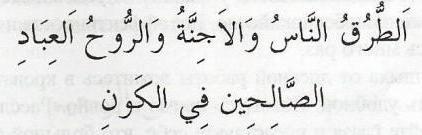 اَلطُّرُقُ النَّاسُ والاَجِنَّةُ والرُّوحُ العِبادِ
الصَّالِحِين في الكونِ